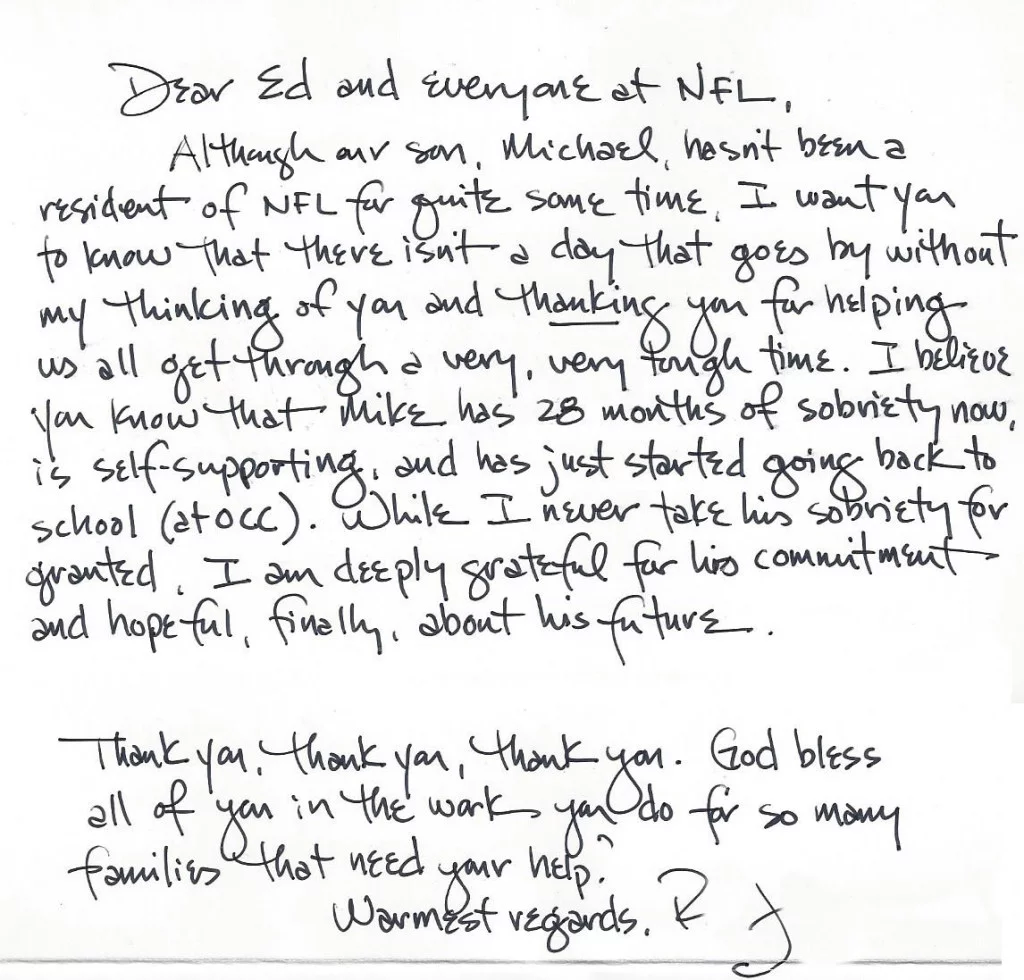 Dear Ed and everyone at NFL,
Although our son, Michael, hasn't been a
resident of NFL for quite some time, I want you
to know that there isn't a day that goes by without
my thinking of you and thanking you for helping
us all get through a very, very tough time. I believe
you know that Mike has 28 months of sobriety now,
is self-supporting, and has just started going back to
school (at OCC). While I never take his sobriety for
granted, I am deeply grateful for his commitment
and hopeful, finally, about his future.
Thank you, thank you, thank you. God bless
all of you in the work you do for so many
families that need your help.
Warmest regards, R J